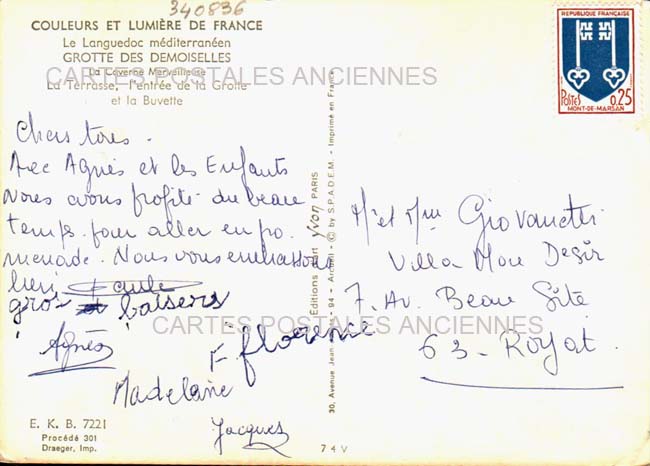 340836
COULEURS ET LUMIÈRE DE FRANCE
Le Languedoc méditerranéen
GROTTE DES DEMOISELLES
La Caverne Merveilleuse
CARTES POSTALES ANCIENNES
La Terrasse, l'entrée de la Grotte
et la Buvette
Chers tous.
Avec Agnès et les Enfants
Nous avons profité du beau
temps pour aller en pro
menade. Nous vous embrassons
bien
gros baisers
Agnès
Florence
Madelaine
Jacques
E. K. B. 7221
Procédé 301
Draeger, Imp.
7 4 V
Éditions d'art yvon PARIS
© by S.P.A.D.E.M. - Imprimé en France
30, Avenue Jean - 94 - Arcueil
REPUBLIQUE FRANÇAISE
POSTES 0,25
MONT-DE-MARSAN
Mr et Mme Giovanetti
Villa Mon Desir
7. Av. Beau Site
63 - Royat.
CARTES POSTALES ANCIENNES